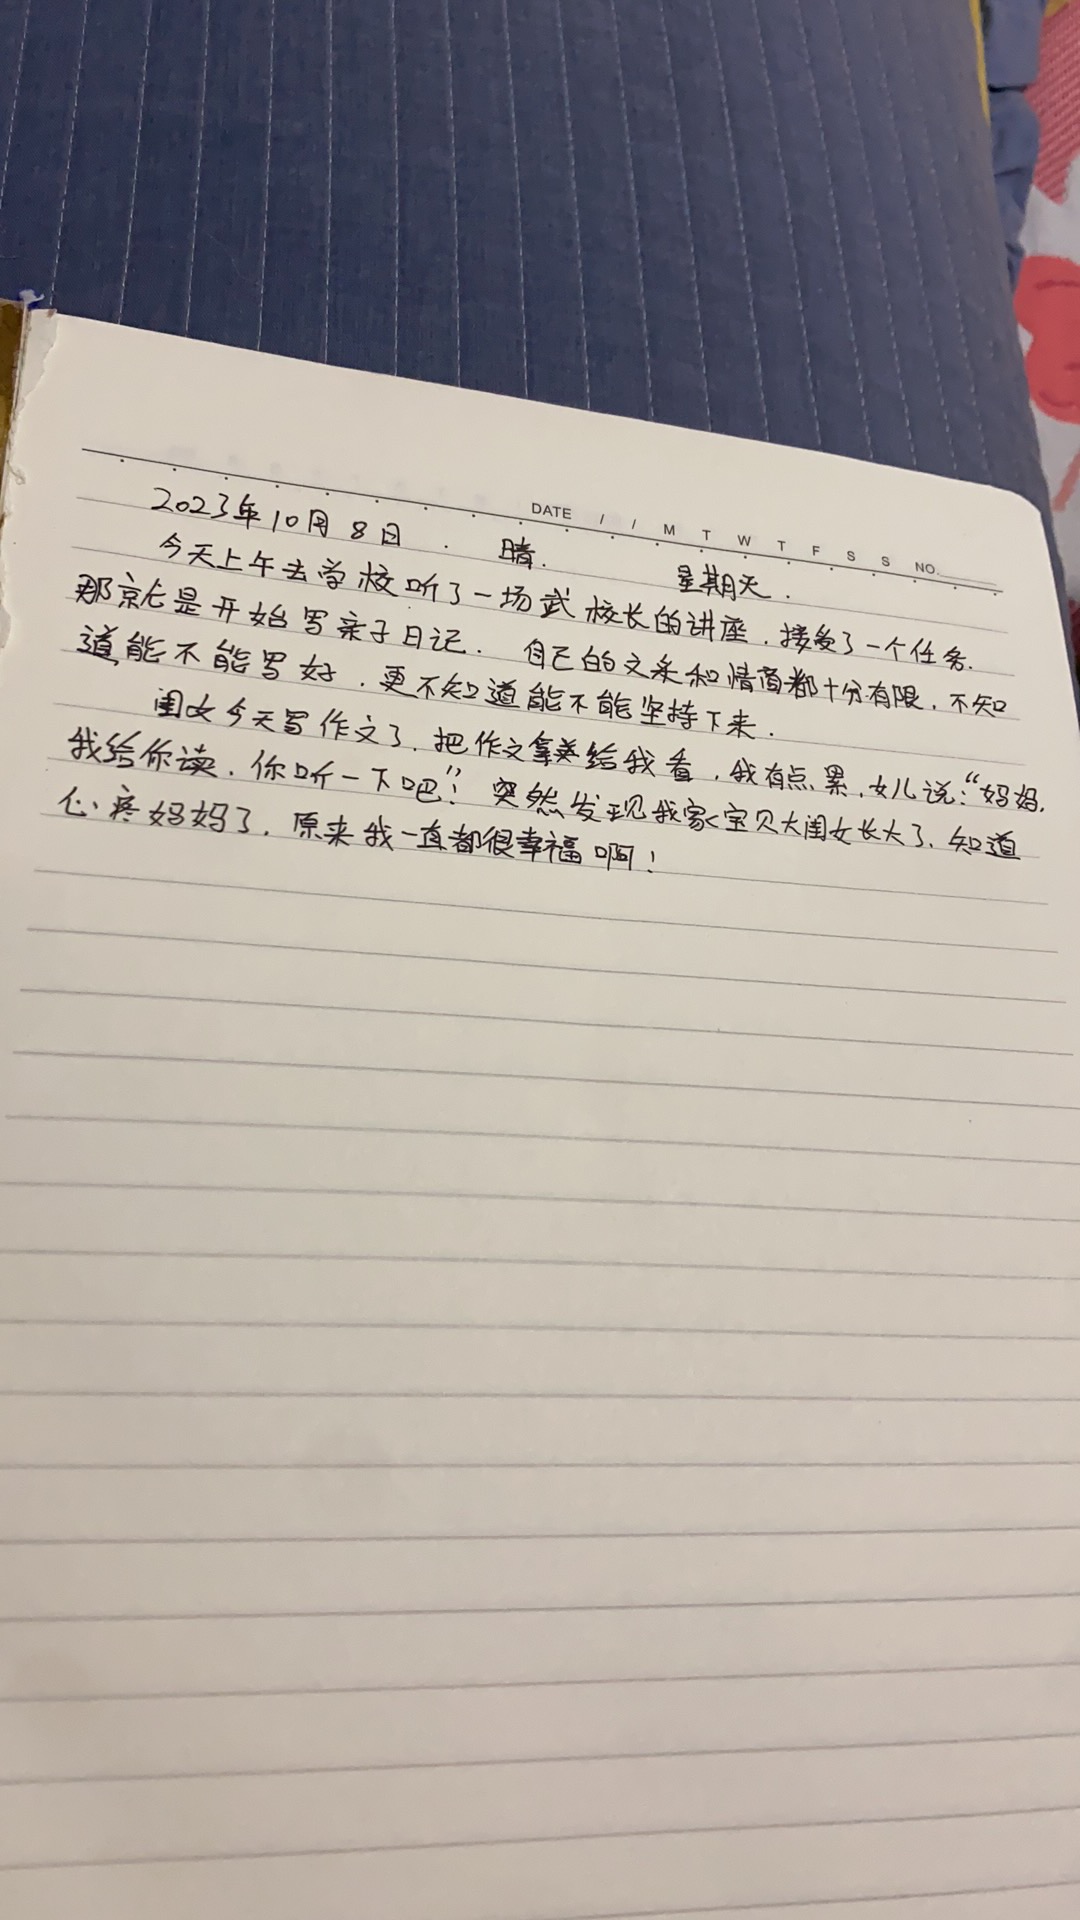 DATE / / M T W T F S S NO.
2023年10月8日. 晴. 星期天.
今天上午去学校听了一场武校长的讲座,接受了一个任务.
那就是开始写亲子日记. 自己的文采和情商都十分有限,不知
道能不能写好,更不知道能不能坚持下来.
闺女今天写作文了,把作文拿给我看,我有点累,女儿说:“妈妈,
我给你读,你听一下吧”!突然发现我家宝贝大闺女长大了,知道
心疼妈妈了,原来我一直都很幸福啊!